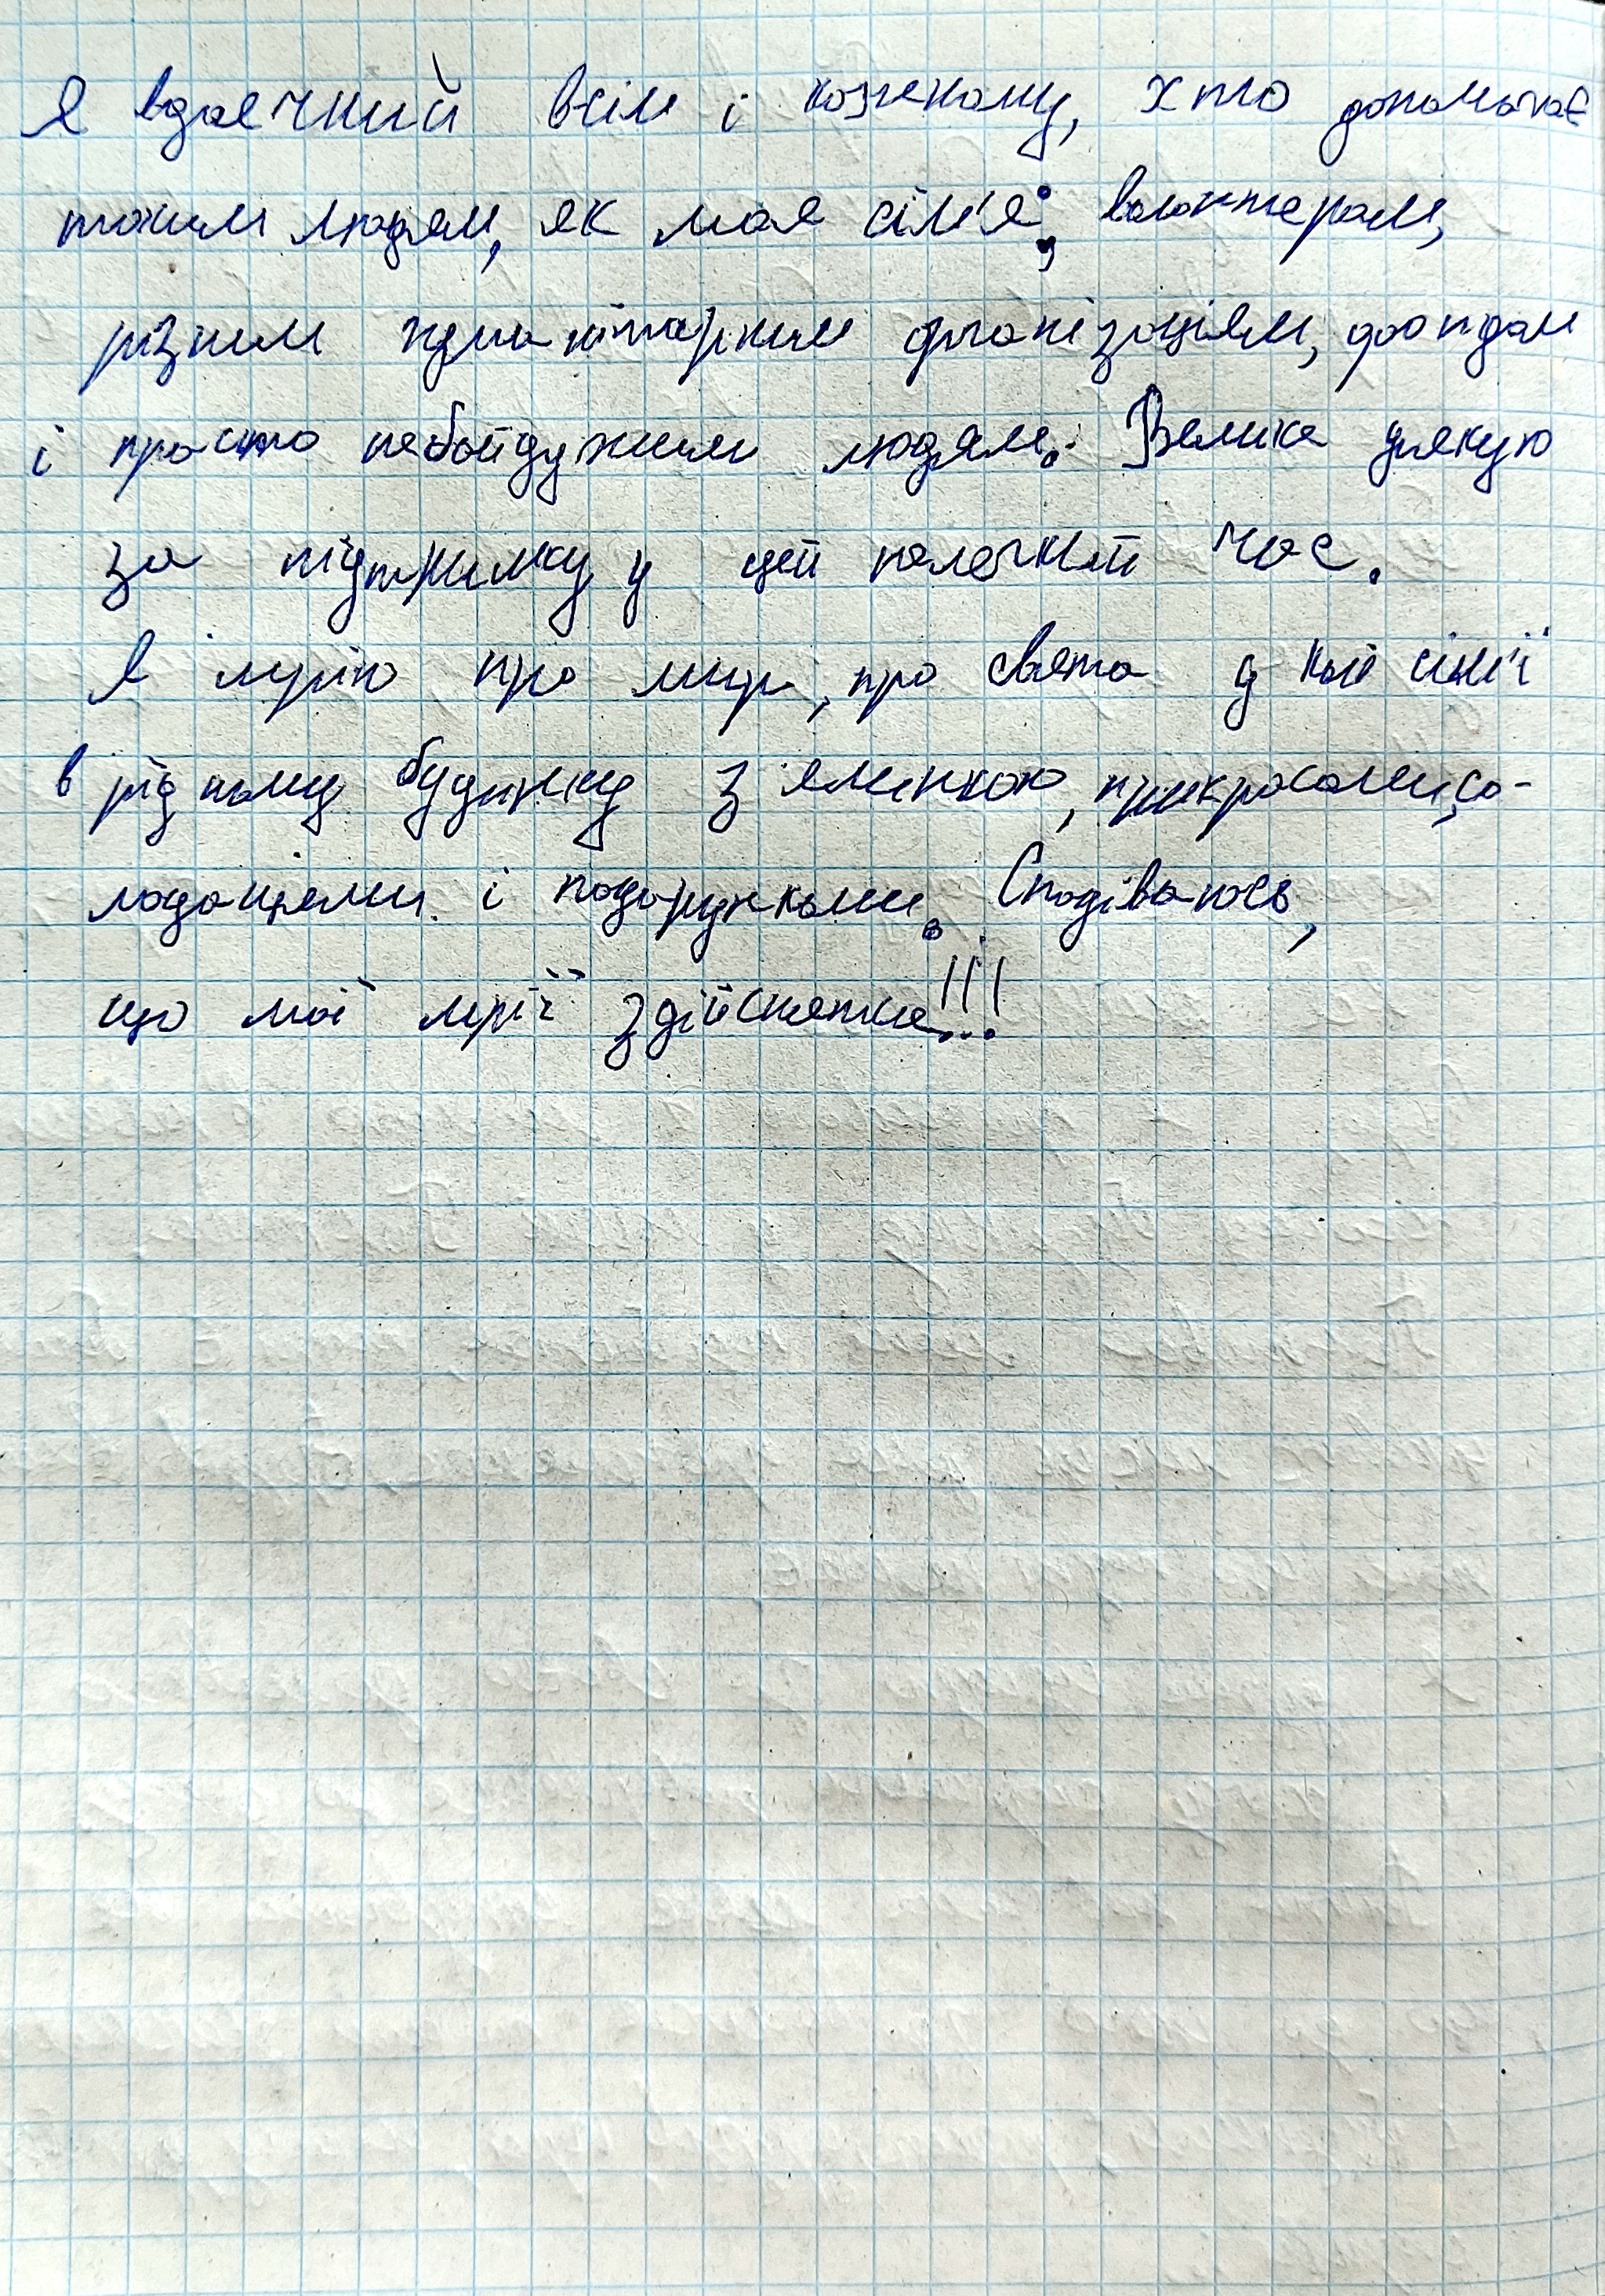 Я вдячний всім і кожному, хто допомагає
таким людям, як моя сім'я: волонтерам,
різним гуманітарним організаціям, фондам
і просто небайдужим людям. Велике дякую
за підтримку у цей нелегкий час.
Я мрію про мир, про свята у колі сім'ї
в рідному будинку з ялинкою, прикрасами, со-
лодощями і подарунками. Сподіваюсь,
що мої мрії здійсняться!!!